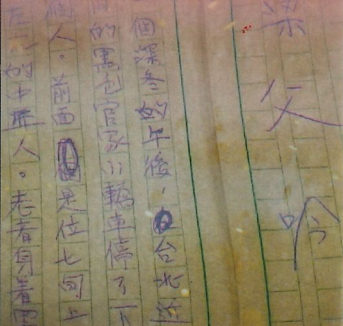 梁父吟
個深冬的午後，台北近
的黑色官家小轎車停了下
個人。前面是位七旬上
的中年人。老者身着黑